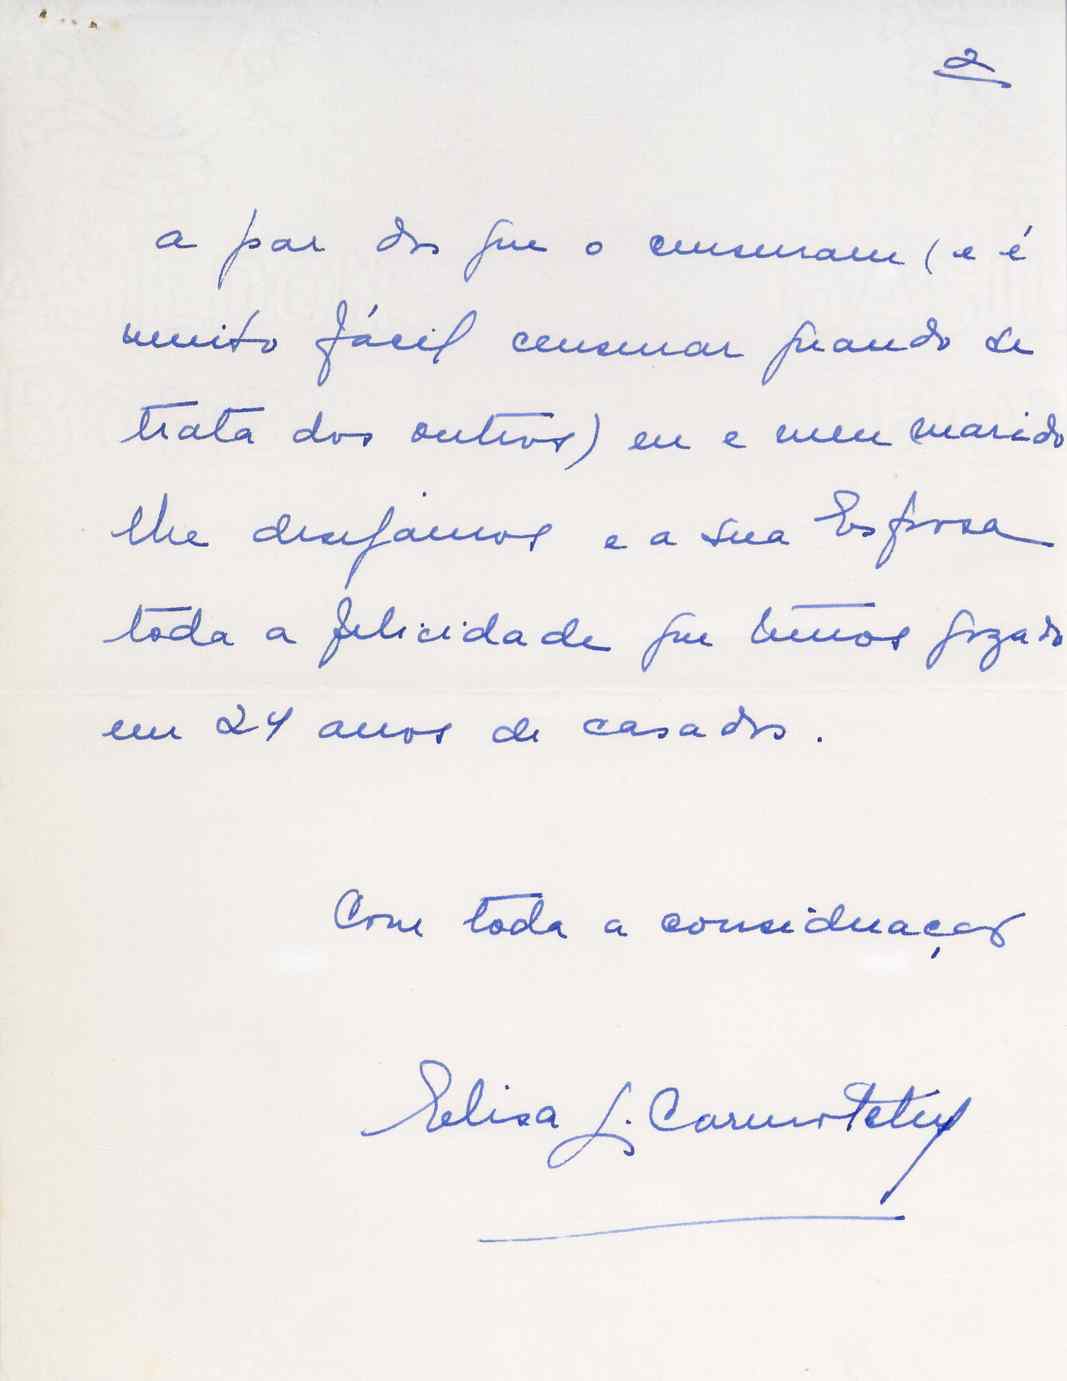 2
a par dos que o censuram (e é
muito fácil censurar quando se
trata dos outros) eu e meu marido
lhe desejamos e a sua Esposa
toda a felicidade que temos gozado
em 24 anos de casados.
Com toda a consideração
Elisa